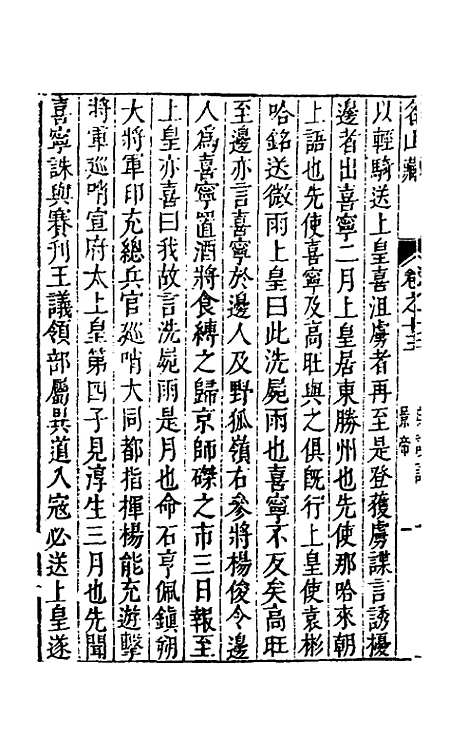 名山藏
卷之十三
景帝
一
以輕騎送上皇喜沮虜者再至是登獲虜謀言誘擾
邊者出喜寧二月上皇居東勝州也先使那哈來朝
上語也先使喜寧及高旺與之俱旣行上皇使袁彬
哈銘送微雨上皇曰此洗屍雨也喜寧不反矣高旺
至邊亦言喜寧於邊人及野狐嶺右參將楊俊令邊
人爲喜寧置酒將食縛之歸京師磔之市三日報至
上皇亦喜曰我故言洗屍雨是月也命石亨佩鎮朔
大將軍印充總兵官廵哨大同都指揮楊能充遊擊
將軍廵哨宣府太上皇第四子見淳生三月也先聞
喜寧誅與賽刊王議領部屬異道入寇必送上皇遂